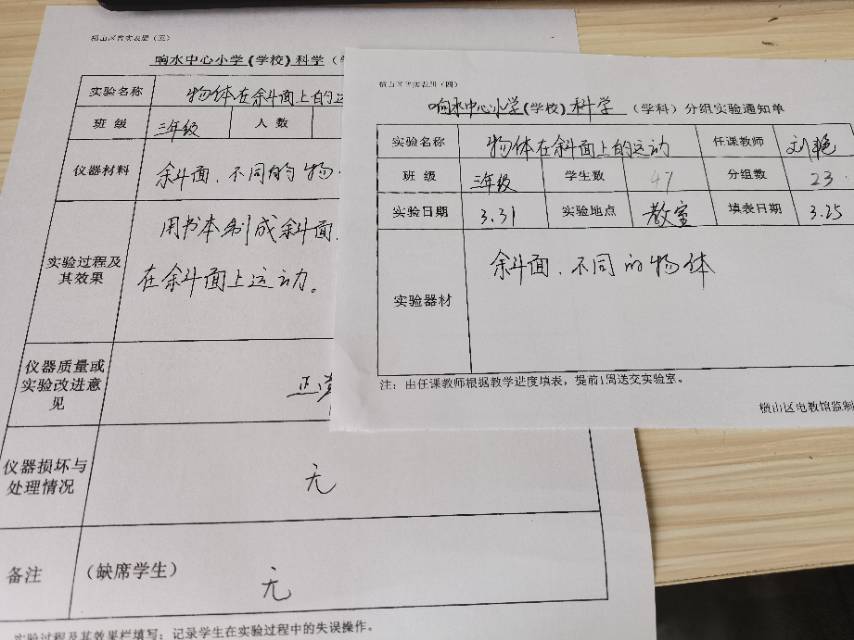 响水中心小学(学校)科学(
实验名称 物体在余斗面上的运
班 级 三年级 人 数
仪器材料 余斗面、不同的物
实验过程及其效果 用书本制成余斗面
在余斗面上运动。
仪器质量或实验改进意见 正常
仪器损坏与处理情况 无
备注 (缺席学生) 无
实验过程及其效果栏填写:记录学生在实验过程中的失误操作。
响水中心小学(学校)科学(学科)分组实验通知单
实验名称 物体在余斗面上的运动 任课教师 刘艳
班 级 三年级 学生数 47 分组数 23
实验日期 3.31 实验地点 教室 填表日期 3.25
实验器材 余斗面、不同的物体
注:由任课教师根据教学进度填表,提前1周送交实验室。
横山区电教馆监制